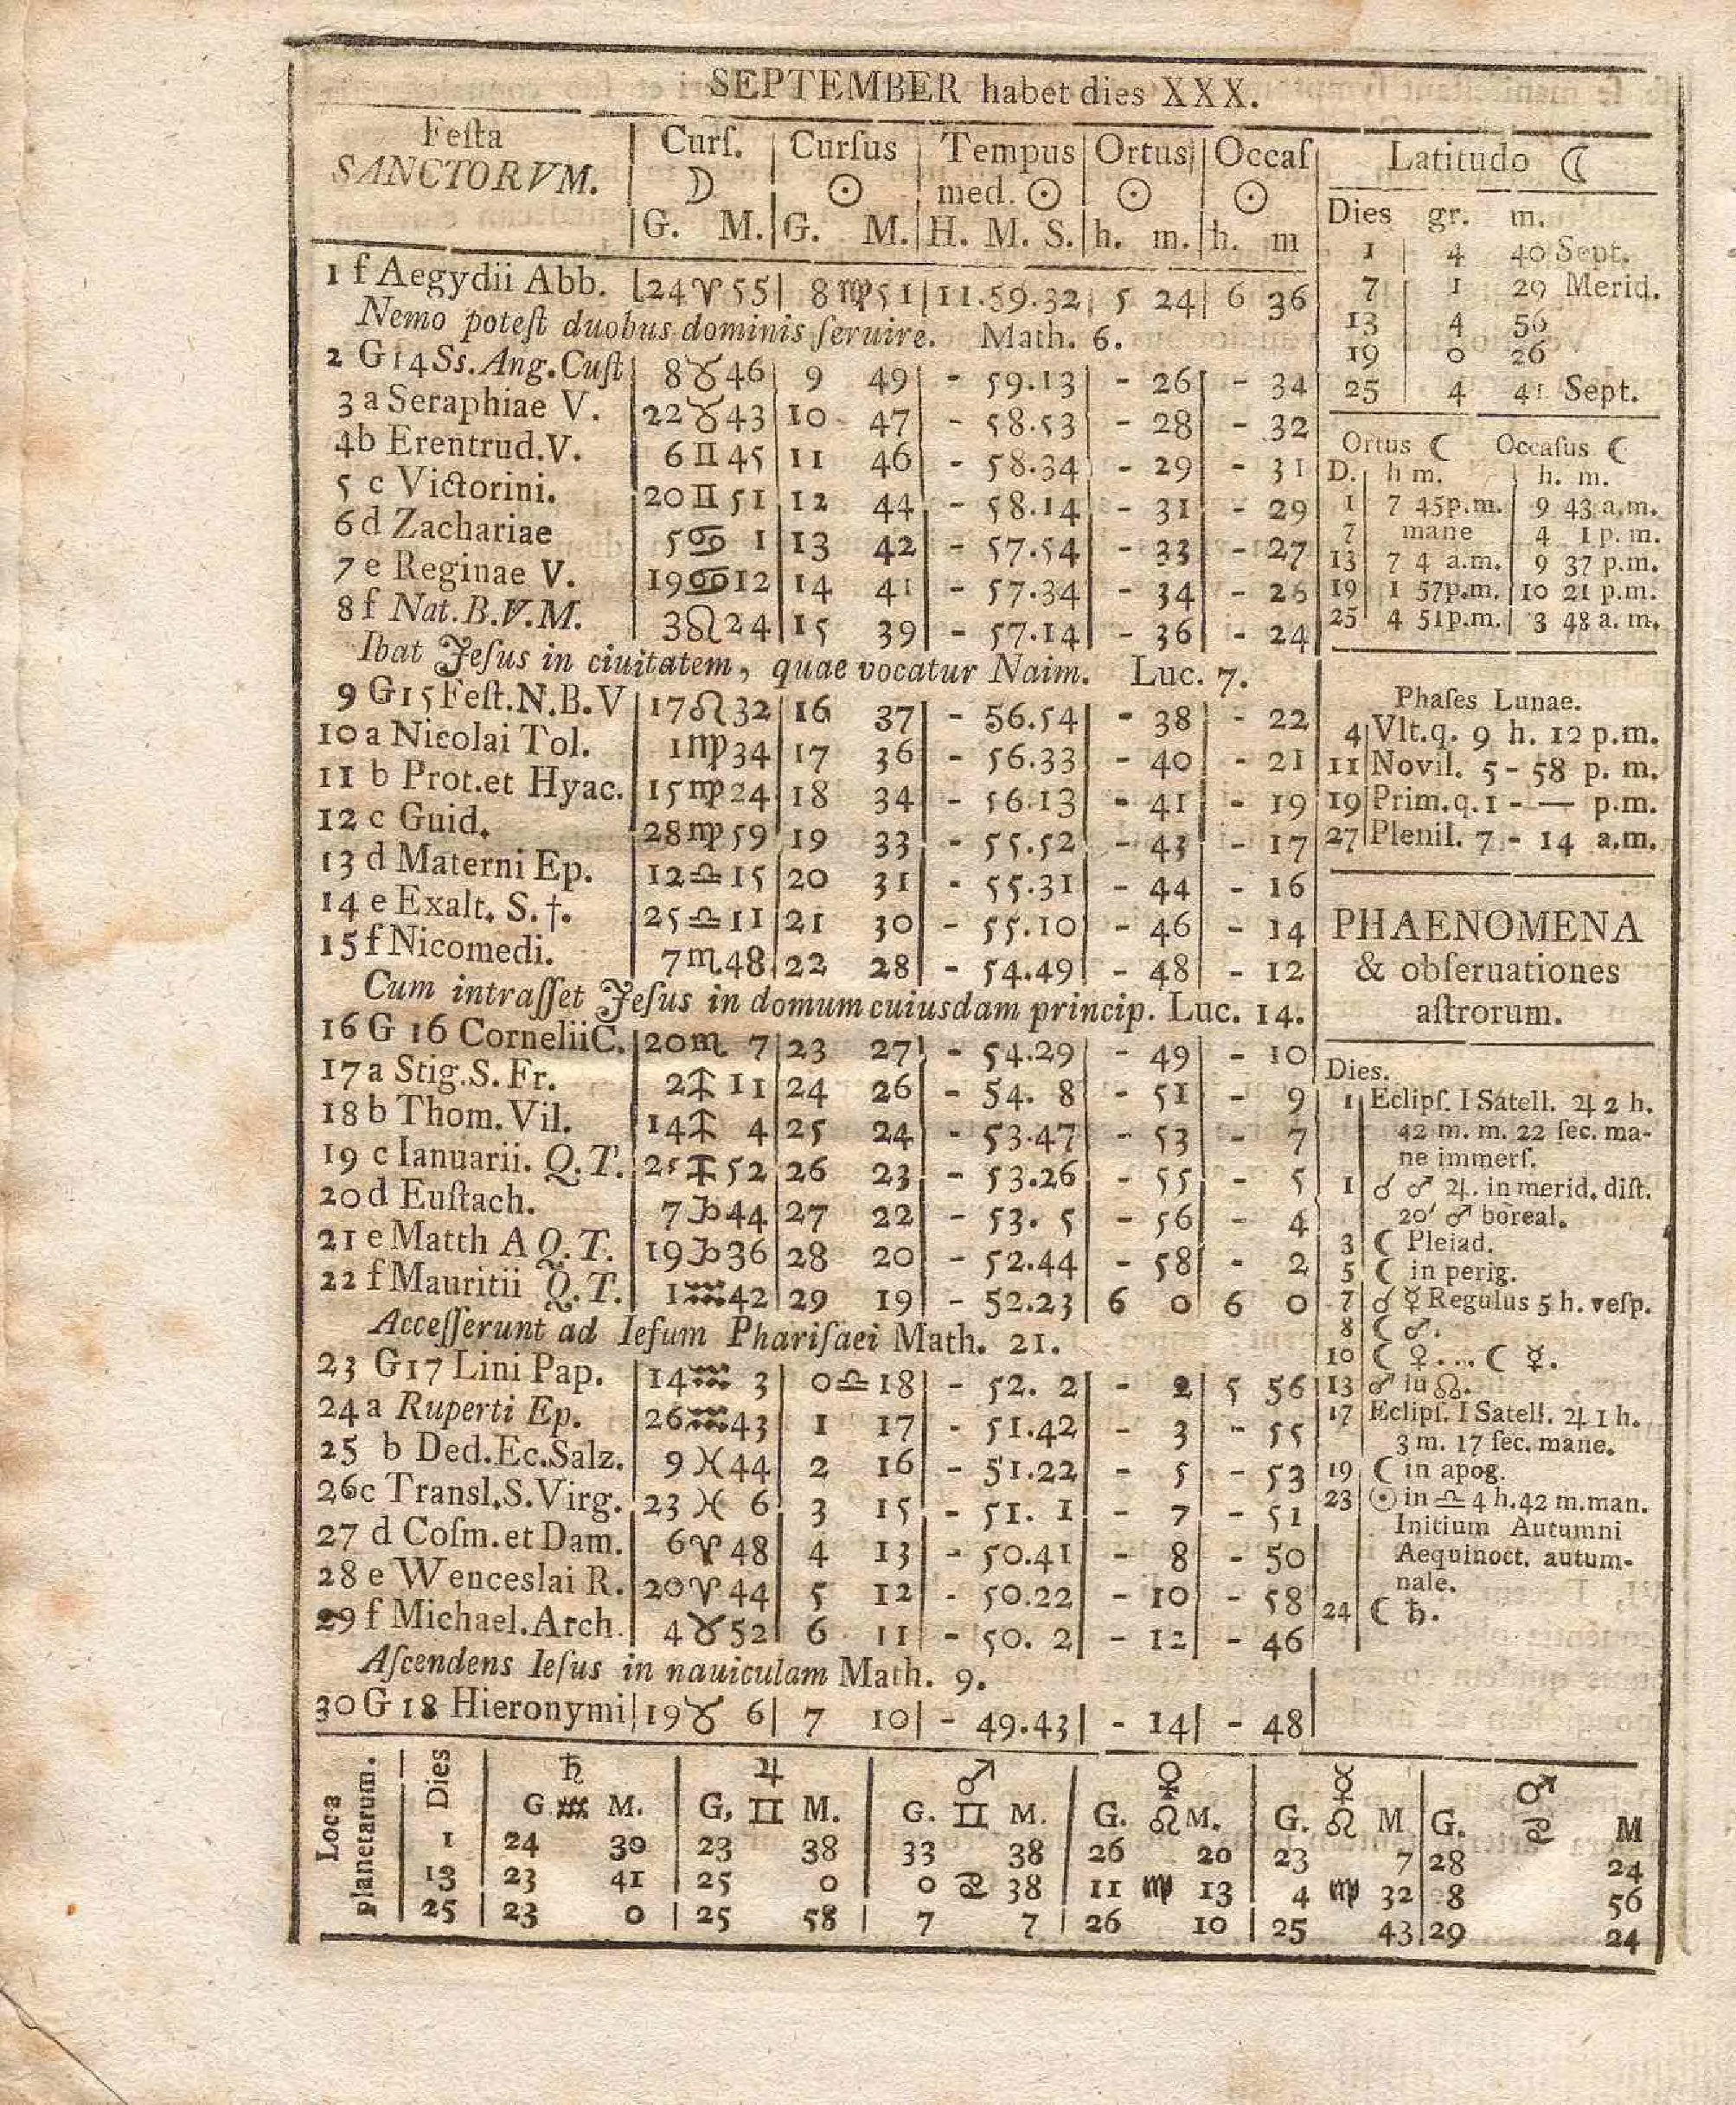 SEPTEMBER habet dies XXX.
Feſta SANCTORVM.
Curſ. ☽ G. M.
Curſus ☉ G. M.
Tempus med. ☉ H. M. S.
Ortus ☉ h. m.
Occaſ ☉ h. m
1 f Aegydii Abb. 24 ♈ 55 8 ♍ 51 11.59.32 5 24 6 36
Nemo poteſt duobus dominis ſeruire. Math. 6.
2 G 14 Ss. Ang. Cuſt 8 ♉ 46 9 49 - 59.13 - 26 - 34
3 a Seraphiae V. 22 ♉ 43 10 47 - 58.53 - 28 - 32
4 b Erentrud. V. 6 ♊ 45 11 46 - 58.34 - 29 - 31
5 c Victorini. 20 ♊ 51 12 44 - 58.14 - 31 - 29
6 d Zachariae 5 ♋ 1 13 42 - 57.54 - 33 - 27
7 e Reginae V. 19 ♋ 12 14 41 - 57.34 - 34 -
8 f Nat. B. V. M. 3 ♌ 24 15 39 - 57.14 - 36 - 24
Ibat Jeſus in ciuitatem, quae vocatur Naim. Luc. 7.
9 G 15 Feſt. N. B. V 17 ♌ 32 16 37 - 56.54 - 38 - 22
10 a Nicolai Tol. 1 ♍ 34 17 36 - 56.33 - 40 - 21
11 b Prot. et Hyac. 15 ♍ 24 18 34 - 56.13 - 41 - 19
12 c Guid. 28 ♍ 59 19 33 - 55.52 - 43 - 17
13 d Materni Ep. 12 ♎ 15 20 31 - 55.31 - 44 - 16
14 e Exalt. S. †. 25 ♎ 11 21 30 - 55.10 - 46 - 14
15 f Nicomedi. 7 ♏ 48 22 28 - 54.49 - 48 - 12
Cum intraſſet Jeſus in domum cuiusdam princip. Luc. 14.
16 G 16 Cornelii C. 20 ♏ 7 23 27 - 54.29 - 49 - 10
17 a Stig. S. Fr. 2 ♐ 11 24 26 - 54. 8 - 51 - 9
18 b Thom. Vil. 14 ♐ 4 25 24 - 53.47 - 53 - 7
19 c Ianuarii. Q. T. 25 ♐ 52 26 23 - 53.26 - 55 - 5
20 d Euſtach. 7 ♑ 44 27 22 - 53. 5 - 56 - 4
21 e Matth A Q. T. 19 ♑ 36 28 20 - 52.44 - 58 - 2
22 f Mauritii Q. T. 1 ♒ 42 29 19 - 52.23 6 0 6 0
Acceſſerunt ad Ieſum Phariſaei Math. 21.
23 G 17 Lini Pap. 14 ♒ 3 0 ♎ 18 - 52. 2 - 2 5 56
24 a Ruperti Ep. 26 ♒ 43 1 17 - 51.42 - 3 - 55
25 b Ded. Ec. Salz. 9 ♓ 44 2 16 - 51.22 - 5 - 53
26 c Transl. S. Virg. 23 ♓ 6 3 15 - 51. 1 - 7 - 51
27 d Coſm. et Dam. 6 ♈ 48 4 13 - 50.41 - 8 - 50
28 e Wenceslai R. 20 ♈ 44 5 12 - 50.22 - 10 - 58
29 f Michael. Arch. 4 ♉ 52 6 11 - 50. 2 - 12 - 46
Aſcendens Ieſus in nauiculam Math. 9.
30 G 18 Hieronymi 19 ♉ 6 7 10 - 49.43 - 14 - 48
Latitudo ☾
Dies gr. m.
1 4 40 Sept.
7 1 29 Merid.
13 4 56
19 0 26
25 4 41 Sept.
Ortus ☾ Occaſus ☾
D. h m. h. m.
1 7 45 p.m. 9 43 a.m.
7 mane 4 1 p. m.
13 7 4 a.m. 9 37 p.m.
19 1 57 p.m. 10 21 p.m.
25 4 51 p.m. 3 48 a. m.
Phaſes Lunae.
4 Vlt. q. 9 h. 12 p.m.
11 Novil. 5 - 58 p. m.
19 Prim. q. 1 - — p.m.
27 Plenil. 7 - 14 a.m.
PHAENOMENA
& obſeruationes
aſtrorum.
Dies.
1 Eclipſ. I Satell. ♃ 2 h.
42 m. m. 22 ſec. ma-
ne immerſ.
1 ☌ ♂ ♃. in merid. diſt.
20′ ♂ boreal.
3 ☾ Pleiad.
5 ☾ in perig.
7 ☌ ☿ Regulus 5 h. veſp.
8 ☾ ♂.
10 ☾ ♀ ... ☾ ☿.
13 ♂ in ☊.
17 Eclipſ. I Satell. ♃ 1 h.
3 m. 17 ſec. mane.
19 ☾ in apog.
23 ☉ in ♎ 4 h. 42 m. man.
Initium Autumni
Aequinoct. autum-
nale.
24 ☾ ♄.
Loca planetarum.
Dies ♄ ♃ ♂ ♀ ☿ ♂
G ♒ M. G, ♊ M. G. ♊ M. G. ♌ M. G. ♌ M G. ♋ M
1 24 39 23 38 33 38 26 20 23 7 28 24
13 23 41 25 0 0 ♋ 38 11 ♍ 13 4 ♍ 32 8 56
25 23 0 25 58 7 7 26 10 25 43 29 24